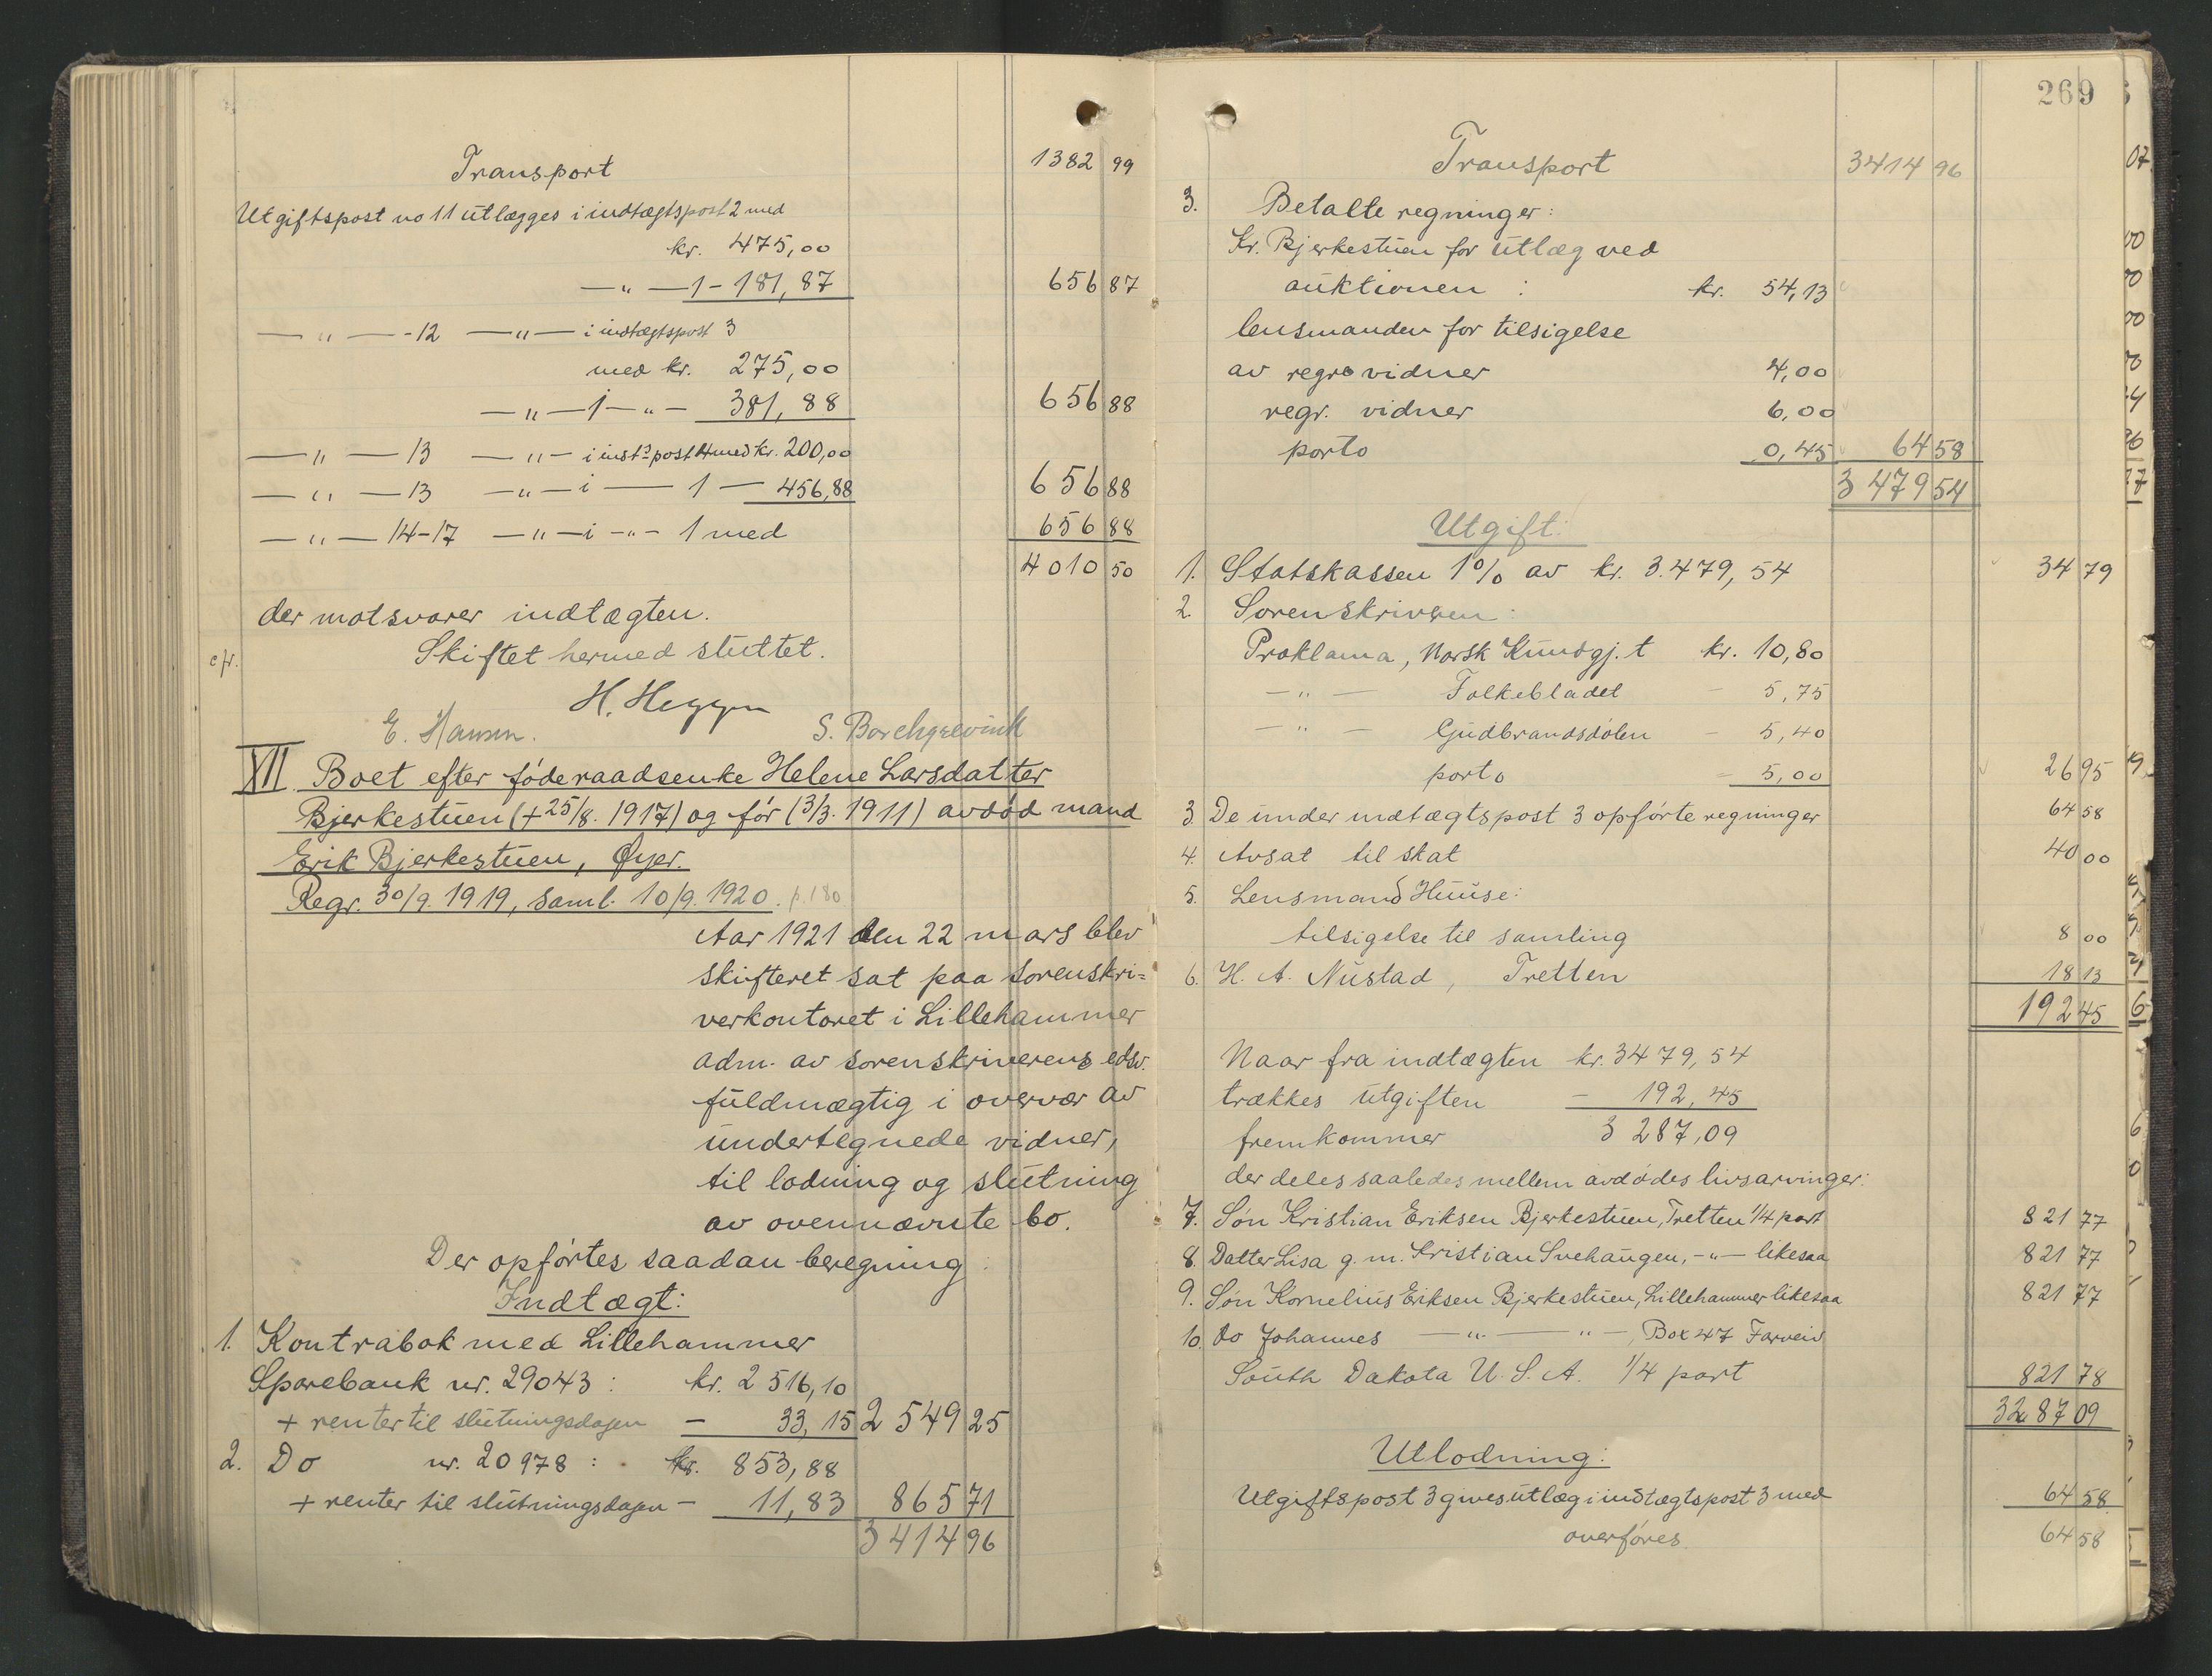 Transport 1382 99
Utgiftspost no 11 utlægges i indtægtspost 2 med
kr. 475,00
—"— 1 - 181,87 656 87
—"— -12 —"— i indtægtspost 3
med kr. 275,00
—"—1—"— 381,88 656 88
—"— 13 —"— i indt. post 4 med kr. 200,00
—"— 13 —"— i — 1 — 456,88 656 88
—"— 14-17 —"— i -"- 1 med 656 88
4010 50
der motsvarer indtægten.
cfr. Skiftet hermed sluttet.
H. Heggen
E. Hansen. S. Borchgrevink
XII. Boet efter føderaadsenke Helene Larsdatter
Bjerkestuen (+ 25/8. 1917) og før (3/3. 1911) avdød mand
Erik Bjerkestuen, Øyer.
Regr. 30/9. 1919, saml. 10/9. 1920. p. 180
Aar 1921 den 22 mars blev
skifteret sat paa sorenskri=
verkontoret i Lillehammer
adm. av sorenskriverens edsv.
fuldmægtig i overvær av
undertegnede vidner,
til lodning og slutning
av ovennævnte bo.
Der opførtes saadan beregning:
Indtægt:
1. Kontrabok med Lillehammer
Sparebank nr. 29043: kr. 2 516,10
+ renter til slutningsdagen - 33,15 2 549 25
2. Do nr. 20978: kr. 853,88
+ renter til slutningsdagen - 11,83 865 71
3414 96
269
Transport 3414 96
3. Betalte regninger:
Kr. Bjerkestuen for utlæg ved
auktionen: kr. 54,13
lensmanden for tilsigelse
av regr. vidner 4,00
regr. vidner 6,00
porto 0,45 64 58
3 479 54
Utgift:
1. Statskassen 1% av kr. 3.479,54 34 79
2 Sorenskriveren:
Proklama, Norsk Kundgj. t kr. 10,80
—"— Folkebladet - 5,75
—"— Gudbrandsdølen - 5,40
porto - 5,00 26 95
3. De under indtægtspost 3 opførte regninger 64 58
4. Avsat til skat 40 00
5. Lensmand Huuse:
tilsigelse til samling 8 00
6. H. A. Nustad, Tretten 18 13
192 45
Naar fra indtægten kr. 3479,54
trækkes utgiften - 192,45
fremkommer 3 287,09
der deles saaledes mellem avdødes livsarvinger:
7. Søn Kristian Eriksen Bjerkestuen, Tretten 1/4 part 821 77
8. Datter Lisa g. m. Kristian Svehaugen, -"- likesaa 821 77
9. Søn Kornelius Eriksen Bjerkestuen, Lillehammer likesaa 821 77
10. Do Johannes —"— —"—, Box 47 Farveiv
South Dakota U. S. A. 1/4 part 821 78
3287 09
Utlodning:
Utgiftspost 3 gives utlæg i indtægtspost 3 med 64 58
overføres 64 58